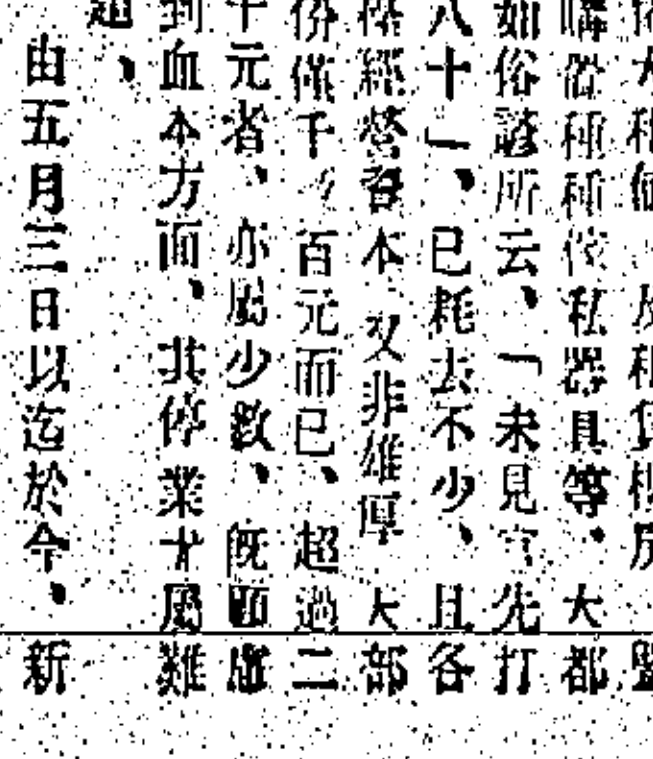 種種傢私器具等、大都
如俗諺所云、「未見官先打
八十」、已耗去不少、且各
經營資本 又非雄厚 大部
份僅千 百元而已、超過二
千元者、亦屬少數、既顧慮
到血本方面、其停業才屬難
題、
由五月三日以迄於今、新